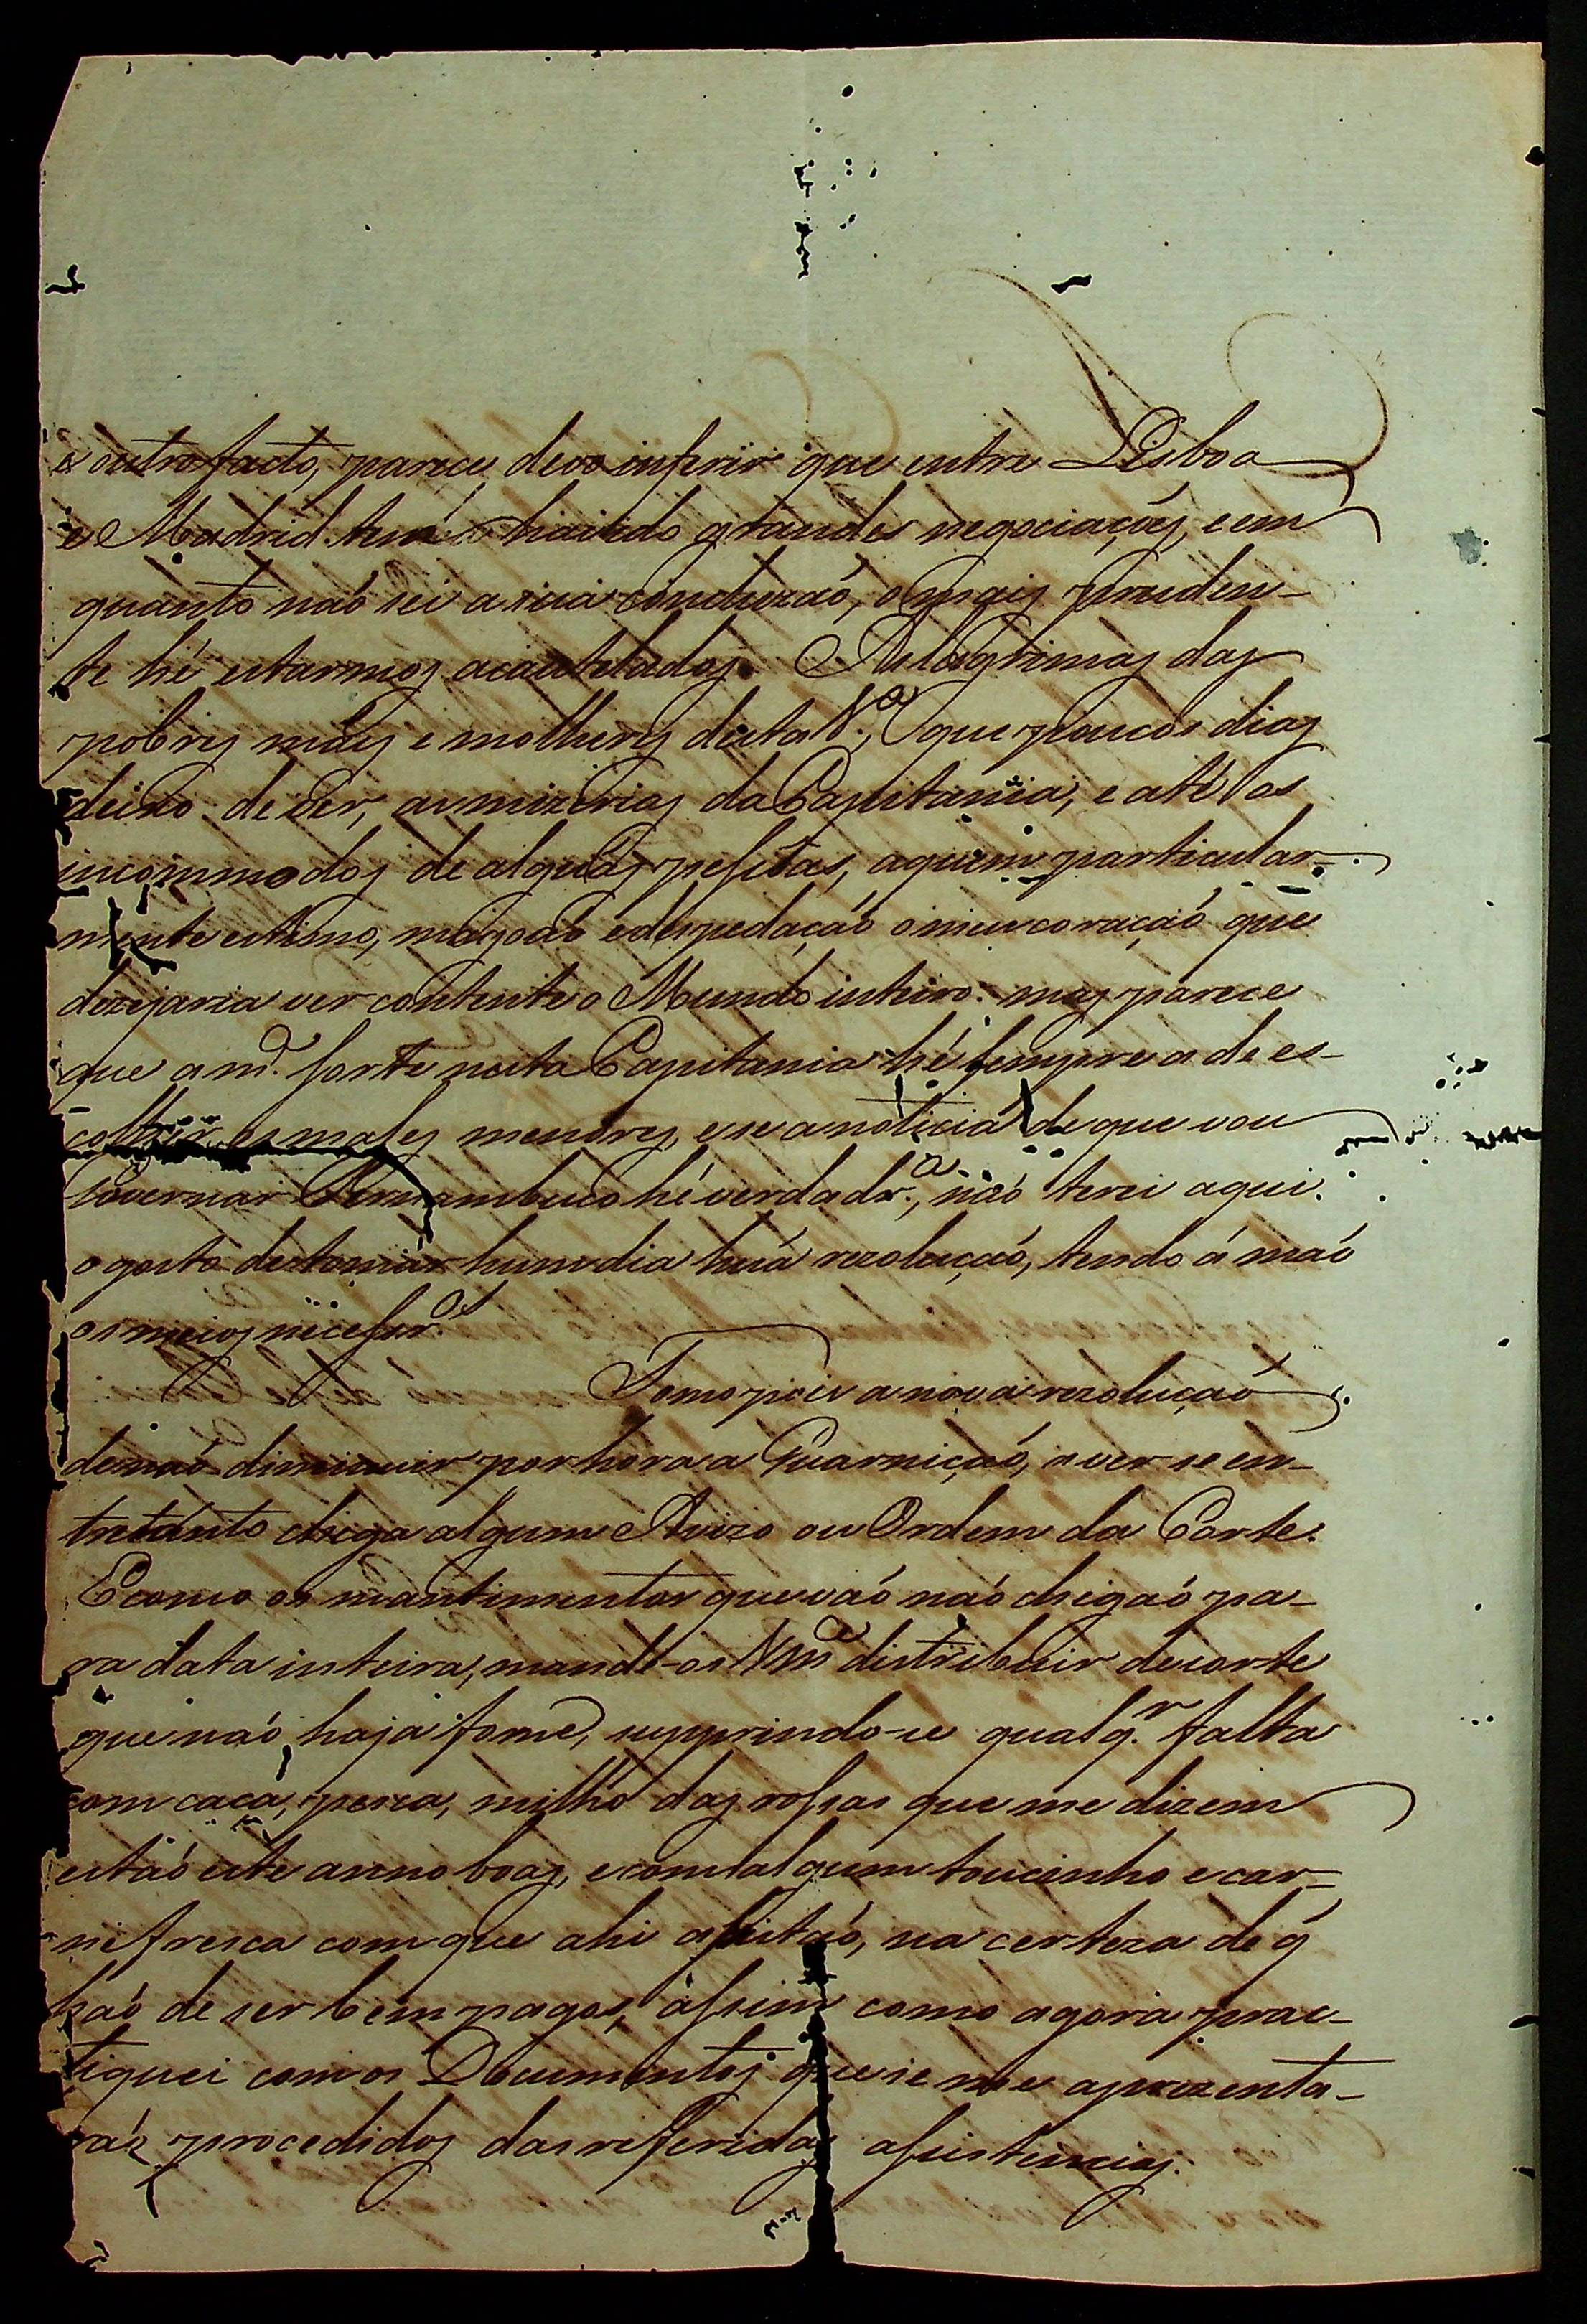 e outro facto, parece devo inferir que entre Lisboa
e Madrid tem havido grandes negociações, e em
quanto naõ sei a sua concluzaõ, o mais pruden-
te hé estarmos acautelados. As lagrimas das
pobres mães e molheres desta V.ª, que poucos dias
deixo de ver, as mizerias da Capitania, e até os
incommodos de alguãs pessoas, a quem particular-
mente estimo, magoaõ e despedaçaõ o meu coraçaõ que
dezejaria ver contente o Mundo inteiro: mas parece
que a m.ª sorte nesta Capitania hé sempre a de es-
colher os males menores, e se a noticia de que vou
Governar Pernambuco hé verdadr.ª, naõ terei aqui
o gosto de tomar hum dia huã rezoluçaõ, tendo á maõ
os meios necessr.os
Tomo pois a nova rezoluçaõ
de naõ diminuir por hora a Guarniçaõ, a ver se en-
tretanto chega algum Avizo ou Ordem da Corte.
E como os mantimentos que vaõ naõ chegaõ pa-
ra data inteira, mande-os Vm.ce distribuir de sorte
que naõ haja fome, supprindo-se qualq.r falta
com caça, pesca, milho das rossas que me dizem
estaõ este anno boas, e com algum toucinho e car-
ne fresca com que ahi assistaõ, na certeza de q̃
haõ de ser bem pagos, assim como agora prac-
tiquei com os Documentos que se me aprezenta-
raõ procedidos das referidas assistencias.